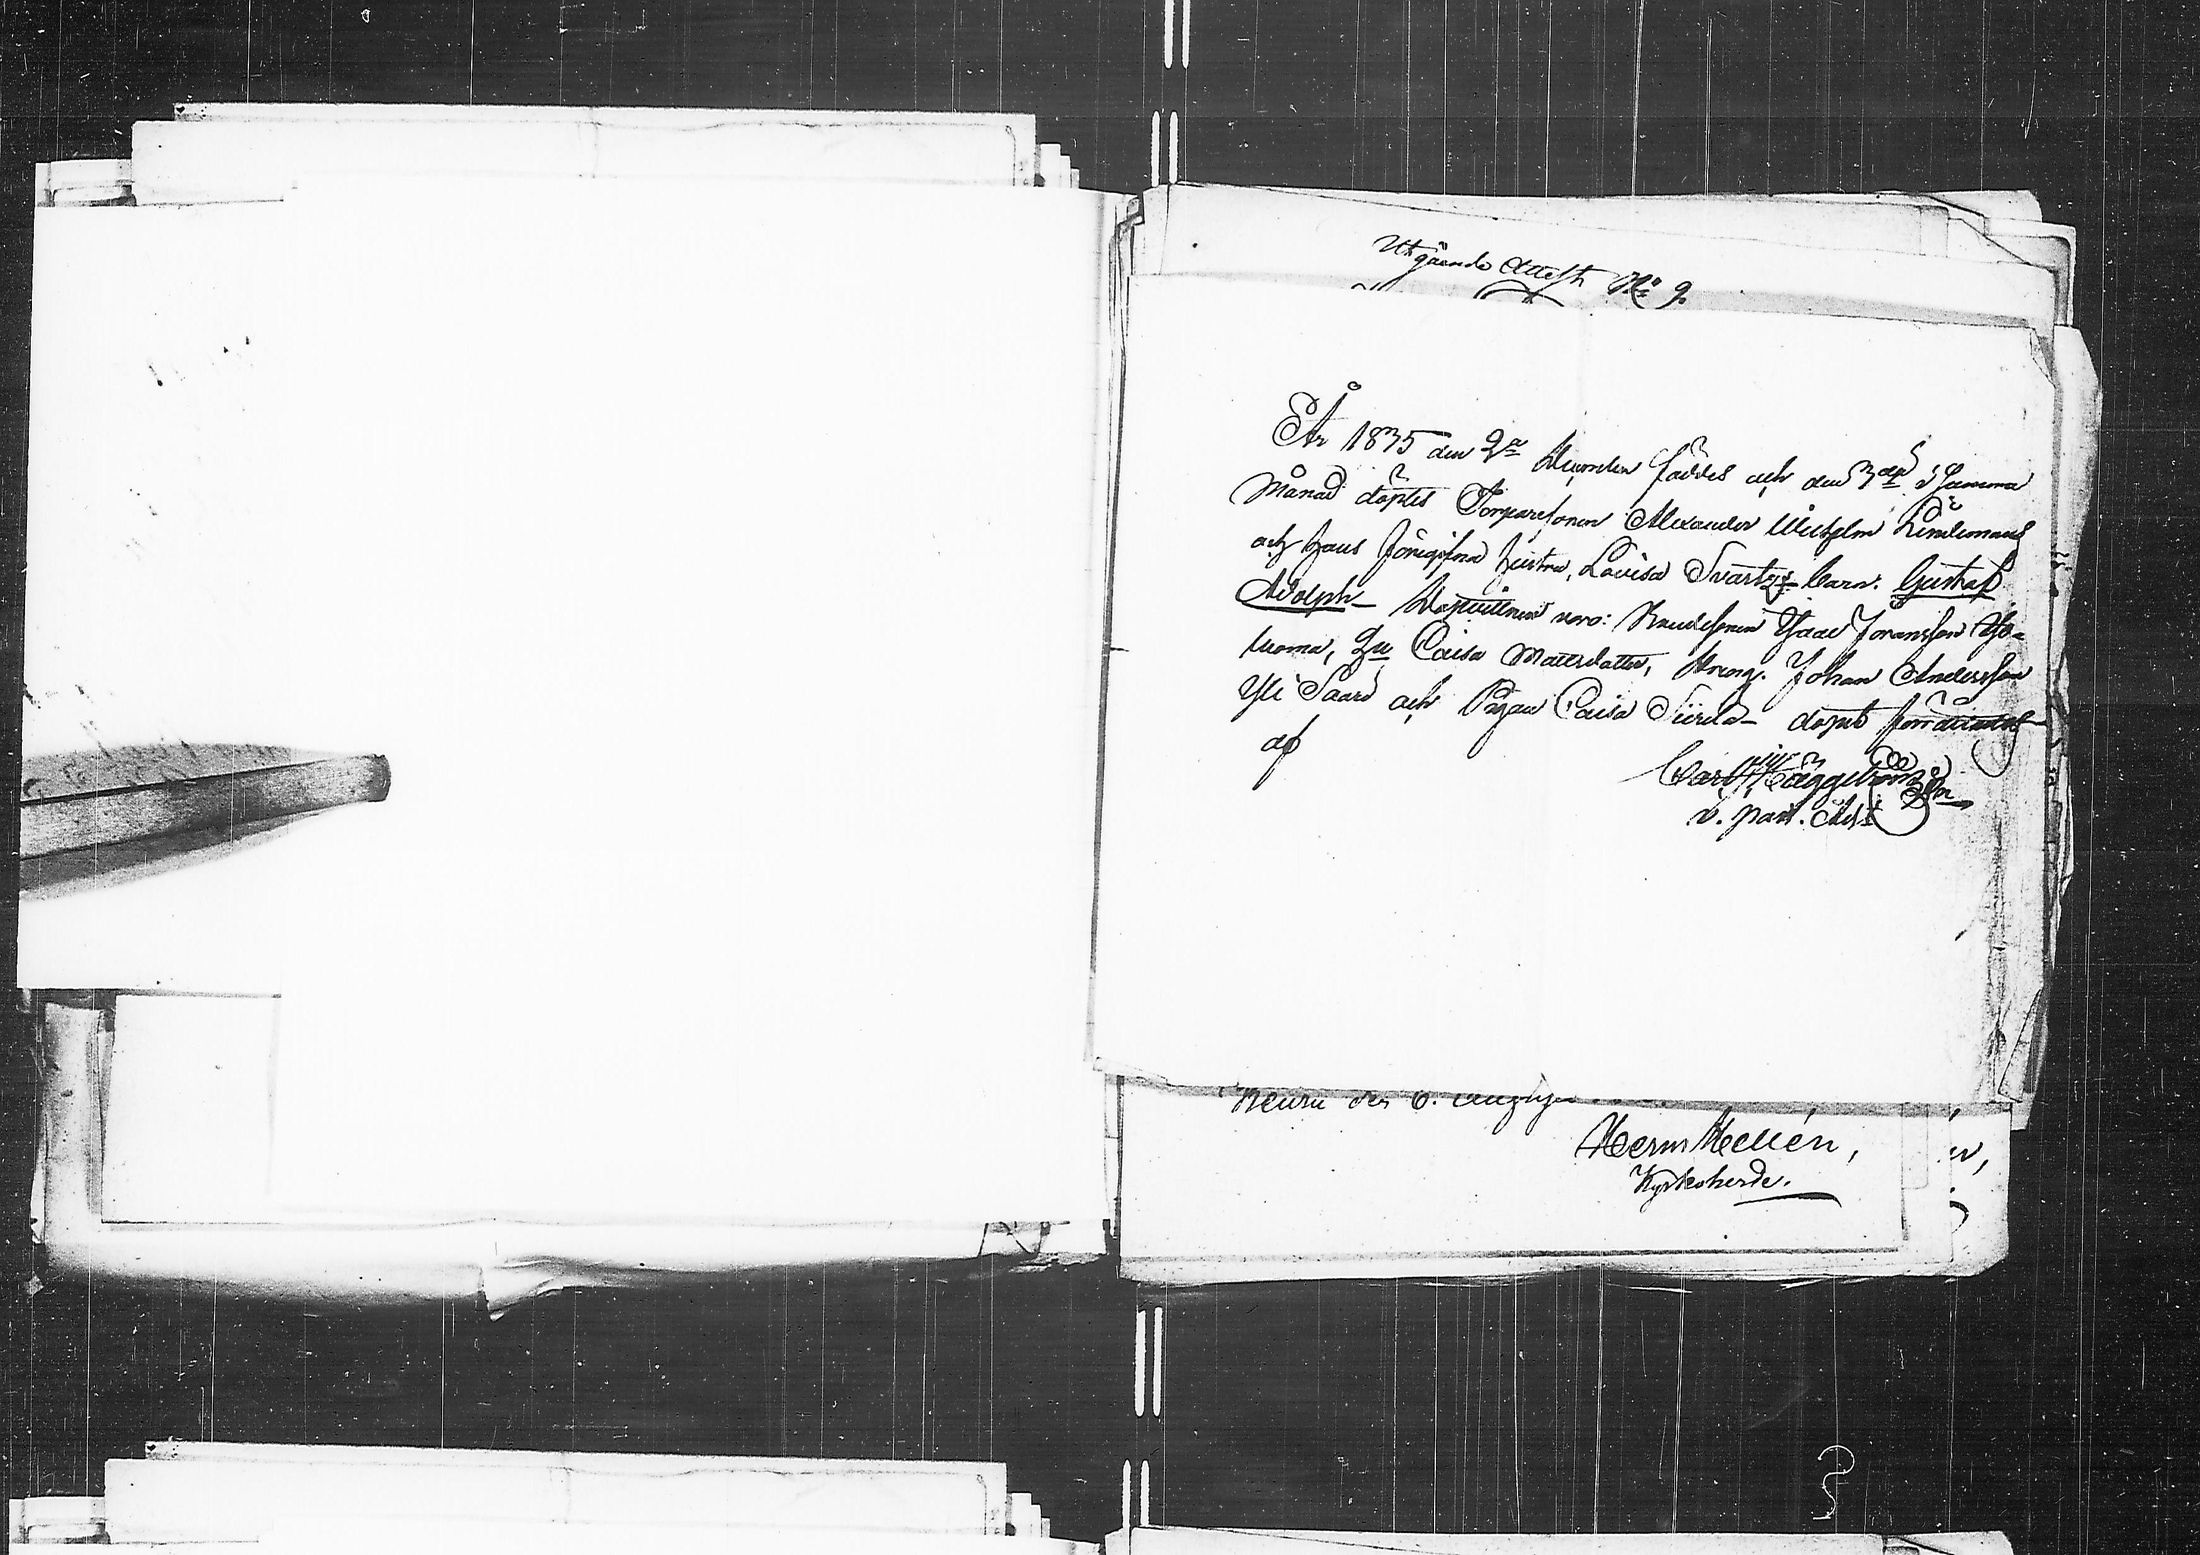 Utgående Attest No 9.
År 1835 den 2a December föddes och den 3dje i samma
månad döptes Torparesonen Alexander Wilhelm Lindemans
och hans Hustru, Lovisa Svartz barn: Gustaf
Adolph Dopvittnen voro: Isaac Johansson
Caisa Mattsdatter, Dreng. Johan Andersson
Yli Saari och Pigan Caisa dopet förrättades
af
Carl Häggström
v. past. Adj.
Keuru den 6.
Herm Hellén,
Kyrkoherde.